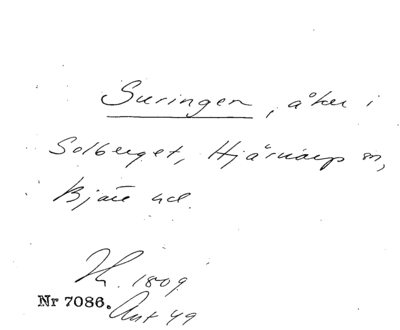 Suringen, åker i
Solberget, Hjärnarp sn,
Bjäre hd.
1809
Nr 7086.
49